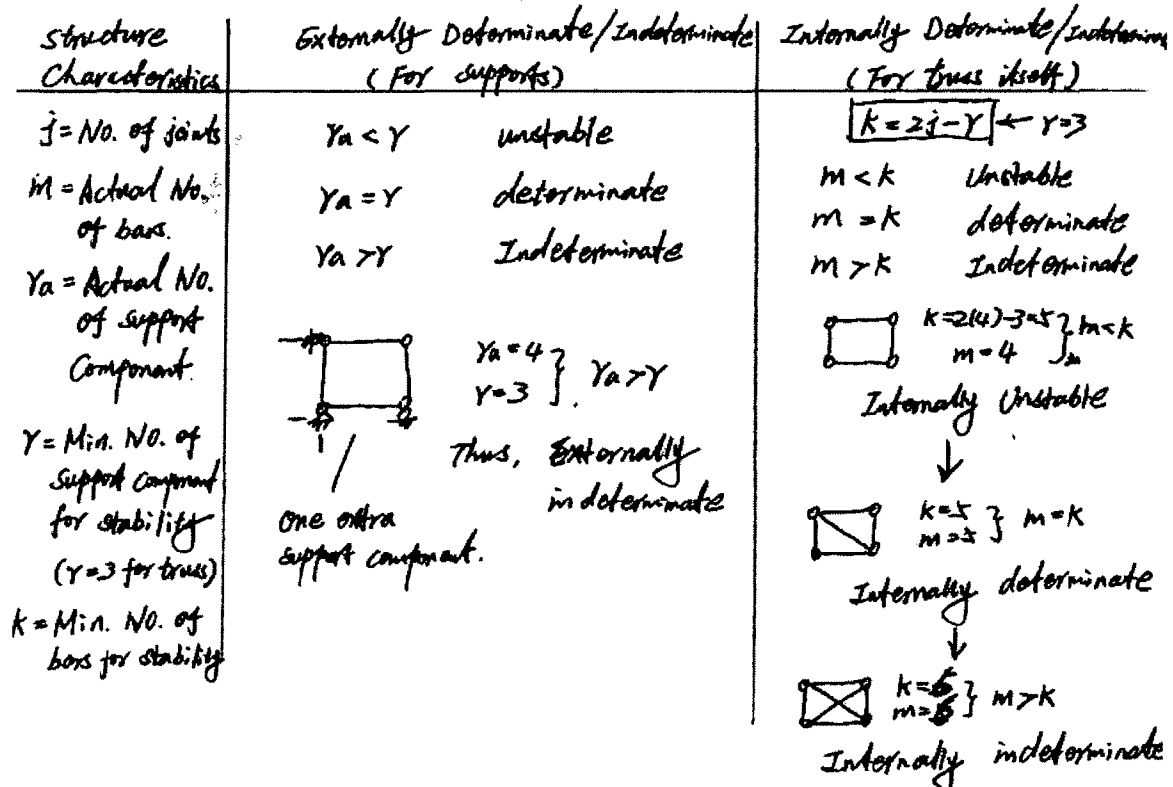 Structure
Characteristics
j = No. of joints
m = Actual No.
of bars.
ra = Actual No.
of support
Component.
r = Min. No. of
support component
for stability
(r=3 for truss)
k = Min. No. of
bars for stability
Externally Determinate/Indeterminate
(For supports)
ra < r unstable
ra = r determinate
ra > r Indeterminate
ra = 4
r = 3 } ra > r
Thus, Externally
indeterminate
one extra
support component.
Internally Determinate/Indetermin
(For truss itself)
k = 2j - r ← r=3
m < k Unstable
m = k determinate
m > k Indeterminate
k=2(4)-3=5
m=4 } m<k
Internally Unstable
k=5
m=5 } m=k
Internally determinate
k=
m= } m>k
Internally indeterminate